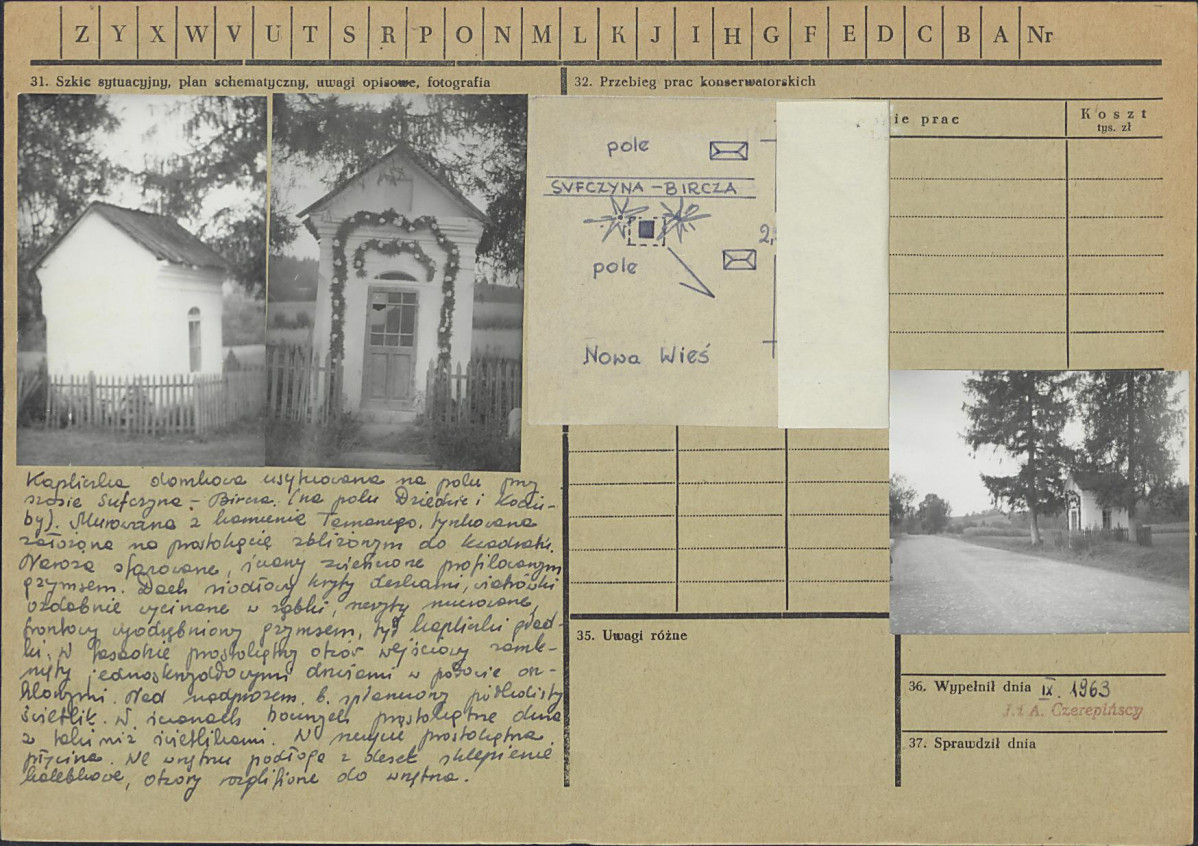 Z Y X W V U T S R P O N M L K J I H G F E D C B A Nr
31. Szkic sytuacyjny, plan schematyczny, uwagi opisowe, fotografia
32. Przebieg prac konserwatorskich
ie prac
Koszt
tys. zł
pole
SUFCZYNA - BIRCZA
2,
pole
Nowa Wieś
Kapliczka domkowa usytuowana na polu przy
szosie Sufczyna - Bircza. (na polu Dziedzic i
by). Murowana z kamienia łamanego, tynkowana
założona na prostokącie zbliżonym do kwadratu.
Naroża ścany zwieńczone profilowanym
gzymsem. Dach siodłowy kryty deskami, wiatrówki
ozdobnie wycinane w ząbki, szczyty murowane,
frontowy wyodrębniony gzymsem, tył kapliczki gład-
ki. W fasadzie prostokątny otwór wejściowy zamk-
nięty jednoskrzydłowymi drzwiami w połowie osz-
klonymi. Nad nadprożem b. spłaszczony półkolisty
świetlik. W ścianach bocznych prostokątne okna
z takimiż świetlikami. W szczycie prostokątna
płycina. We wnętrzu podłoga z desek sklepienie
kolebkowe, otwory rozglifione do wnętrza.
35. Uwagi różne
36. Wypełnił dnia IX. 1963
J. i A. Czerepińscy
37. Sprawdził dnia